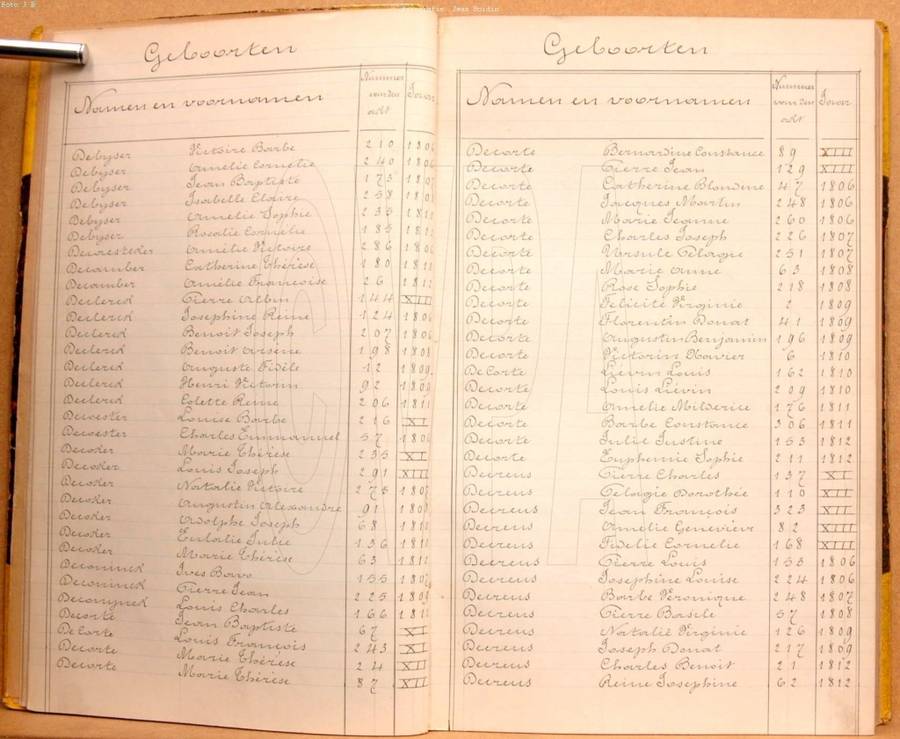 Geboorten
Namen en voornamen Nummer van den akt Jaar
Debyser Victoire Barbe 210 1806
Debyser Amelie Cornelie 240 1806
Debyser Jean Baptiste 173 1807
Debyser Isabelle Claire 258
Debyser Amelie Sophie 235
Debyser Rosalie Cornelie 185 1812
Amélie Victoire 286
Decamber Catherine Thérèse 180 1811
Decamber Amélie Françoise 26 1812
Declerck Pierre Albin 144 XII
Declerck Josephine Reine 124 1806
Declerck Benoit Joseph 207 1806
Declerck Benoit Arsène 198 1808
Declerck Auguste Fidèle 12 1809
Declerck Henri Victorin 92 1809
Declerck Colette Reine 206 1811
Decoester Louise Barbe 216 XI
Decoester Charles Emmanuel 57 1806
Decoker Marie Thérèse 235 XI
Decoker Louis Joseph 291 XIII
Decoker Natalie Victoire 275 1807
Decoker Augustin Alexandre 91 1808
Decoker Adolphe Joseph 68 1810
Decoker Eulalie Julie 136 1811
Decoker Marie Thérèse 63 1812
Deconinck Ives Bavo 155 1807
Deconinck Pierre Jean 225 1809
Deconynck Louis Charles 166 1812
Decorte Jean Baptiste 67 XI
DeCorte Louis François 243 XI
Decorte Marie Thérèse 24 XII
Decorte Marie Thérèse 87 XII
Geboorten
Namen en voornamen Nummer van den akt Jaar
Decorte Bernardine Constance 89 XIII
Decorte Pierre Jean 129 XIII
Decorte Catherine Blondine 47 1806
Decorte Jacques Martin 248 1806
Decorte Marie Jeanne 260 1806
Decorte Charles Joseph 226 1807
Decorte Ursule Pélagie 251 1807
Decorte Marie Anne 63 1808
Decorte Rose Sophie 218 1808
Decorte Felicité Virginie 2 1809
Decorte Florentin Donat 41 1809
Decorte Augustin Benjamin 196 1809
Decorte Victorin Xavier 6 1810
DeCorte Liévin Louis 162 1810
Decorte Louis Liévin 209 1810
Decorte Amelie Milderice 176 1811
Decorte Barbe Constance 306 1811
Decorte Julie Justine 153 1812
Decorte Euphemie Sophie 211 1812
Decreus Pierre Charles 137 XI
Decreus Pélagie Dorothée 110 XII
Decreus Jean François 323 XII
Decreus Amélie Geneviève 82 XIII
Decreus Fidelie Cornelie 168 XIII
Decreus Pierre Louis 153 1806
Decreus Josephine Louise 224 1806
Decreus Barbe Véronique 248 1807
Decreus Pierre Basile 57 1808
Decreus Natalie Virginie 126 1809
Decreus Joseph Donat 217 1809
Decreus Charles Benoit 21 1812
Decreus Reine Josephine 62 1812